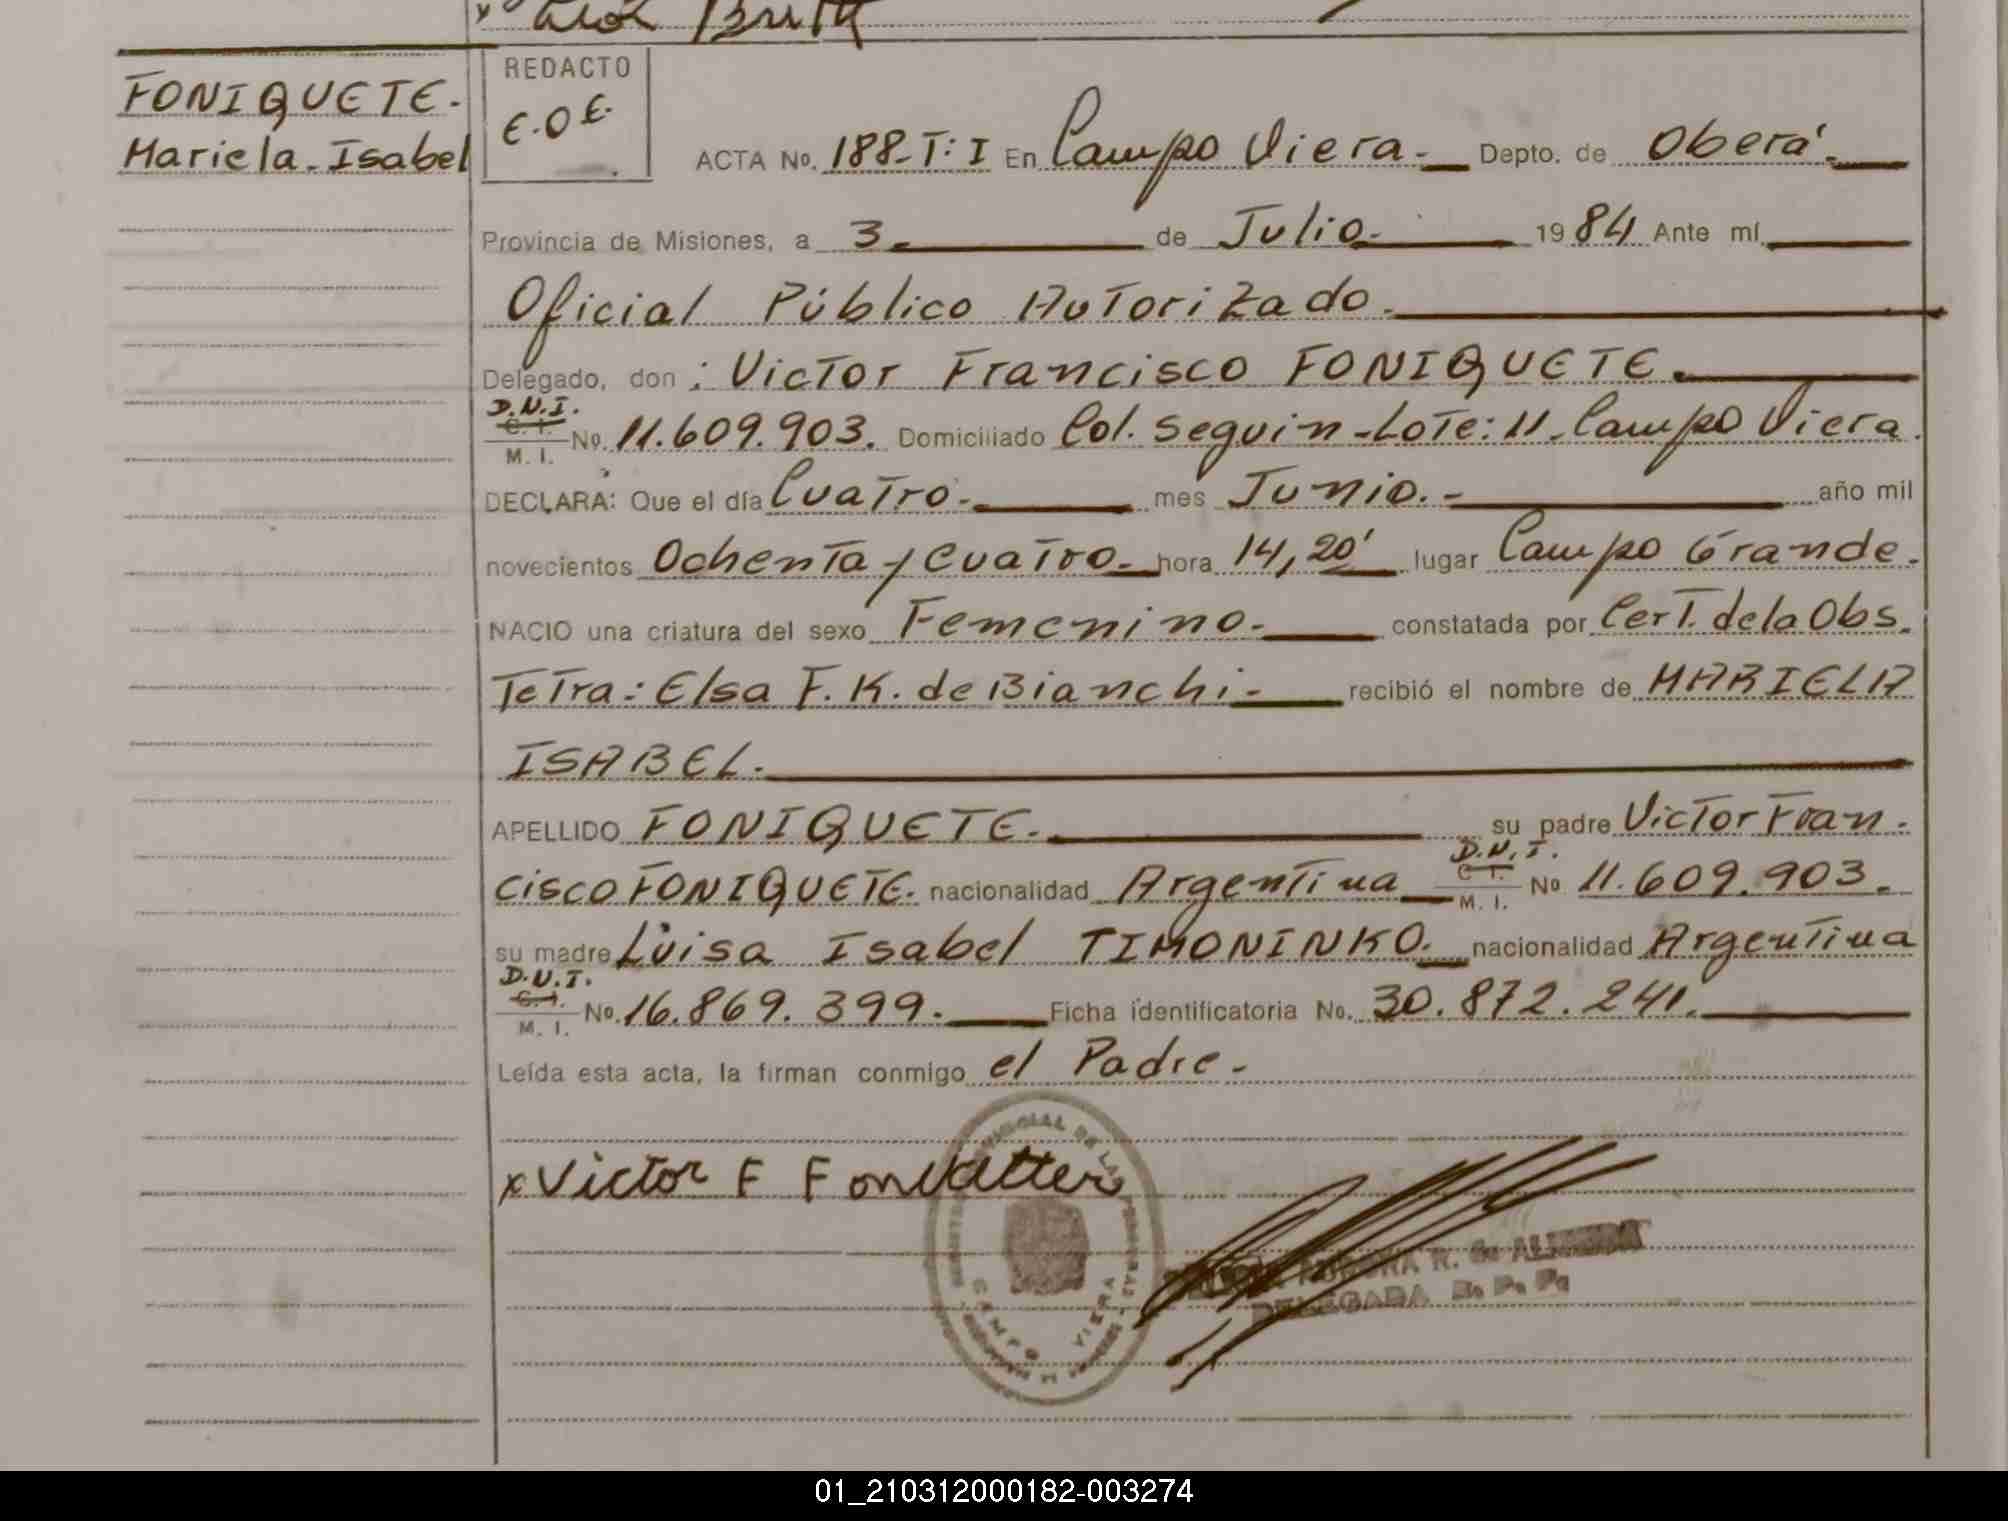 FONIQUETE.
Mariela. Isabel
REDACTO
E.O.E.
ACTA No. 188-T: I En Campo Viera.- Depto. de Oberá.
Provincia de Misiones, a 3. de Julio. 1984 Ante mí
Oficial Público Autorizado.
Delegado, don : Victor Francisco FONIQUETE.
D.N.I.
C. I.
M. I. No. 11.609.903. Domiciliado Col. Seguin-Lote: 11. Campo Viera.
DECLARA: Que el día Cuatro. mes Junio.- año mil
novecientos Ochenta y Cuatro. hora 14,20' lugar Campo Grande.
NACIO una criatura del sexo Femenino. constatada por Cert. de la Obs.
Tetra: Elsa F. K. de Bianchi. recibió el nombre de MARIELA
ISABEL.
APELLIDO FONIQUETE. su padre Victor Fran.
D.N.I.
C. I.
M. I.
cisco FONIQUETE. nacionalidad Argentina No. 11.609.903.
su madre Luisa Isabel TIMONINKO. nacionalidad Argentina
D.N.I.
C. I.
M. I. No. 16.869.399. Ficha identificatoria No. 30.872.241.
Leída esta acta, la firman conmigo el Padre.
x Victor F
CAMPO VIERA
DELEGADA
01_210312000182-003274